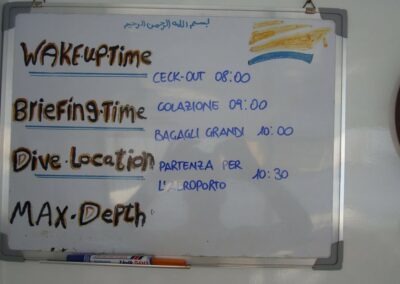 بسم الله الرحمن الرحيم
WAKEUP·Time
CECK-OUT 08:00
BriefiNg·Time
COLAZIONE 09:00
BAGAGLI GRANDI 10:00
Dive·Location
PARTENZA PER
L'AEROPORTO 10:30
MAX·Depth